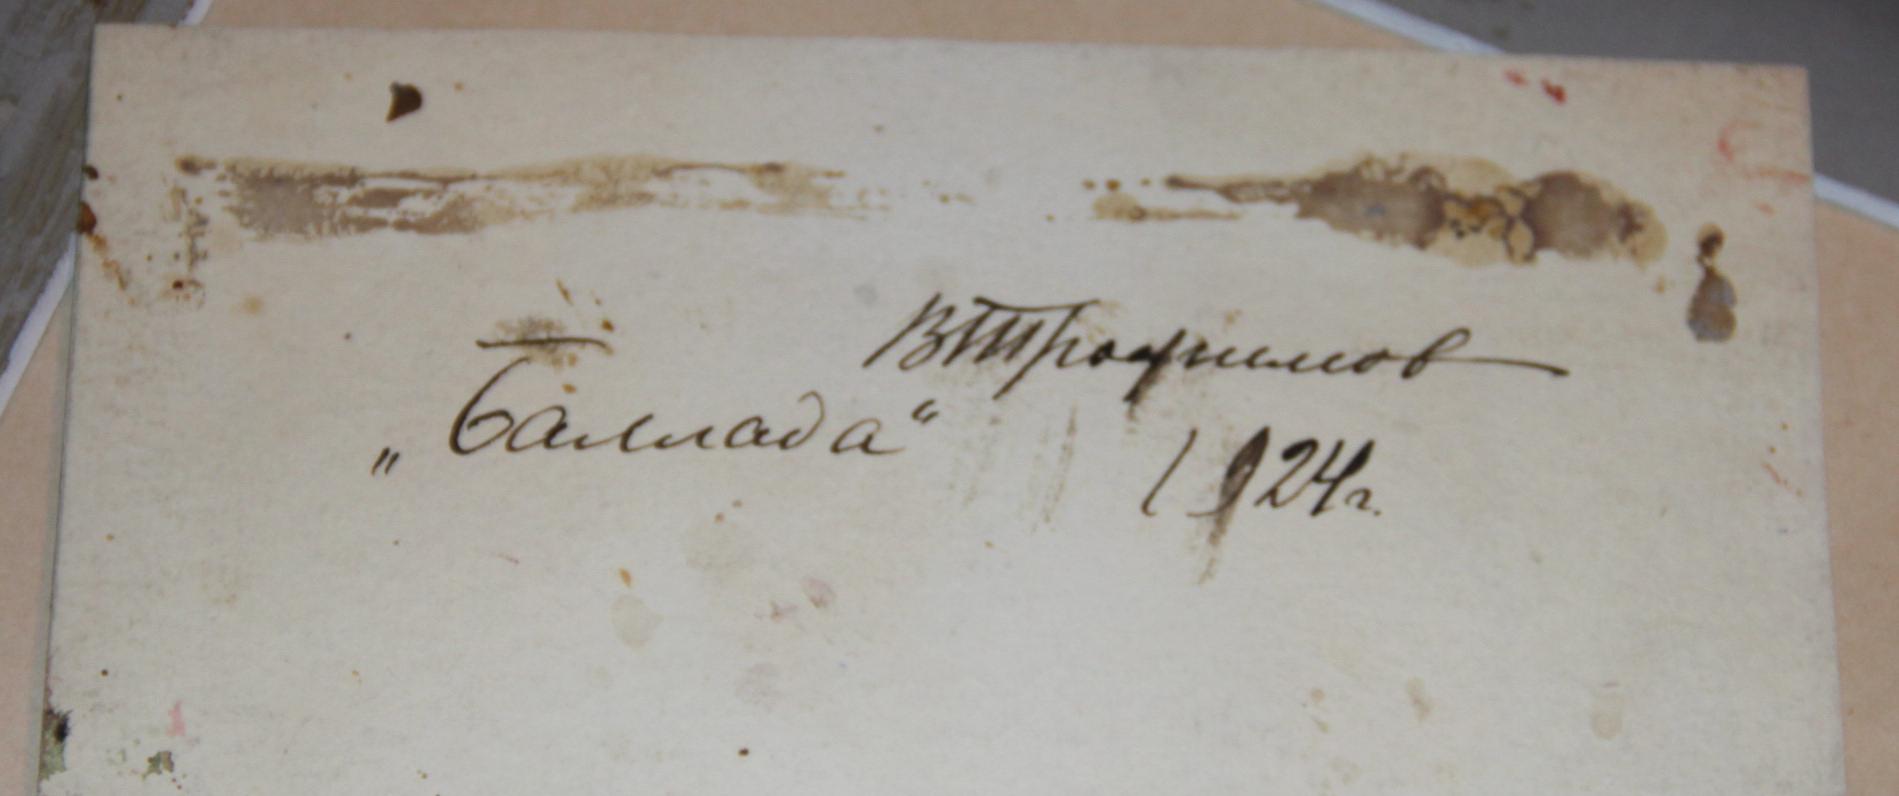 ВТрофимов
„Баллада“
1924г.